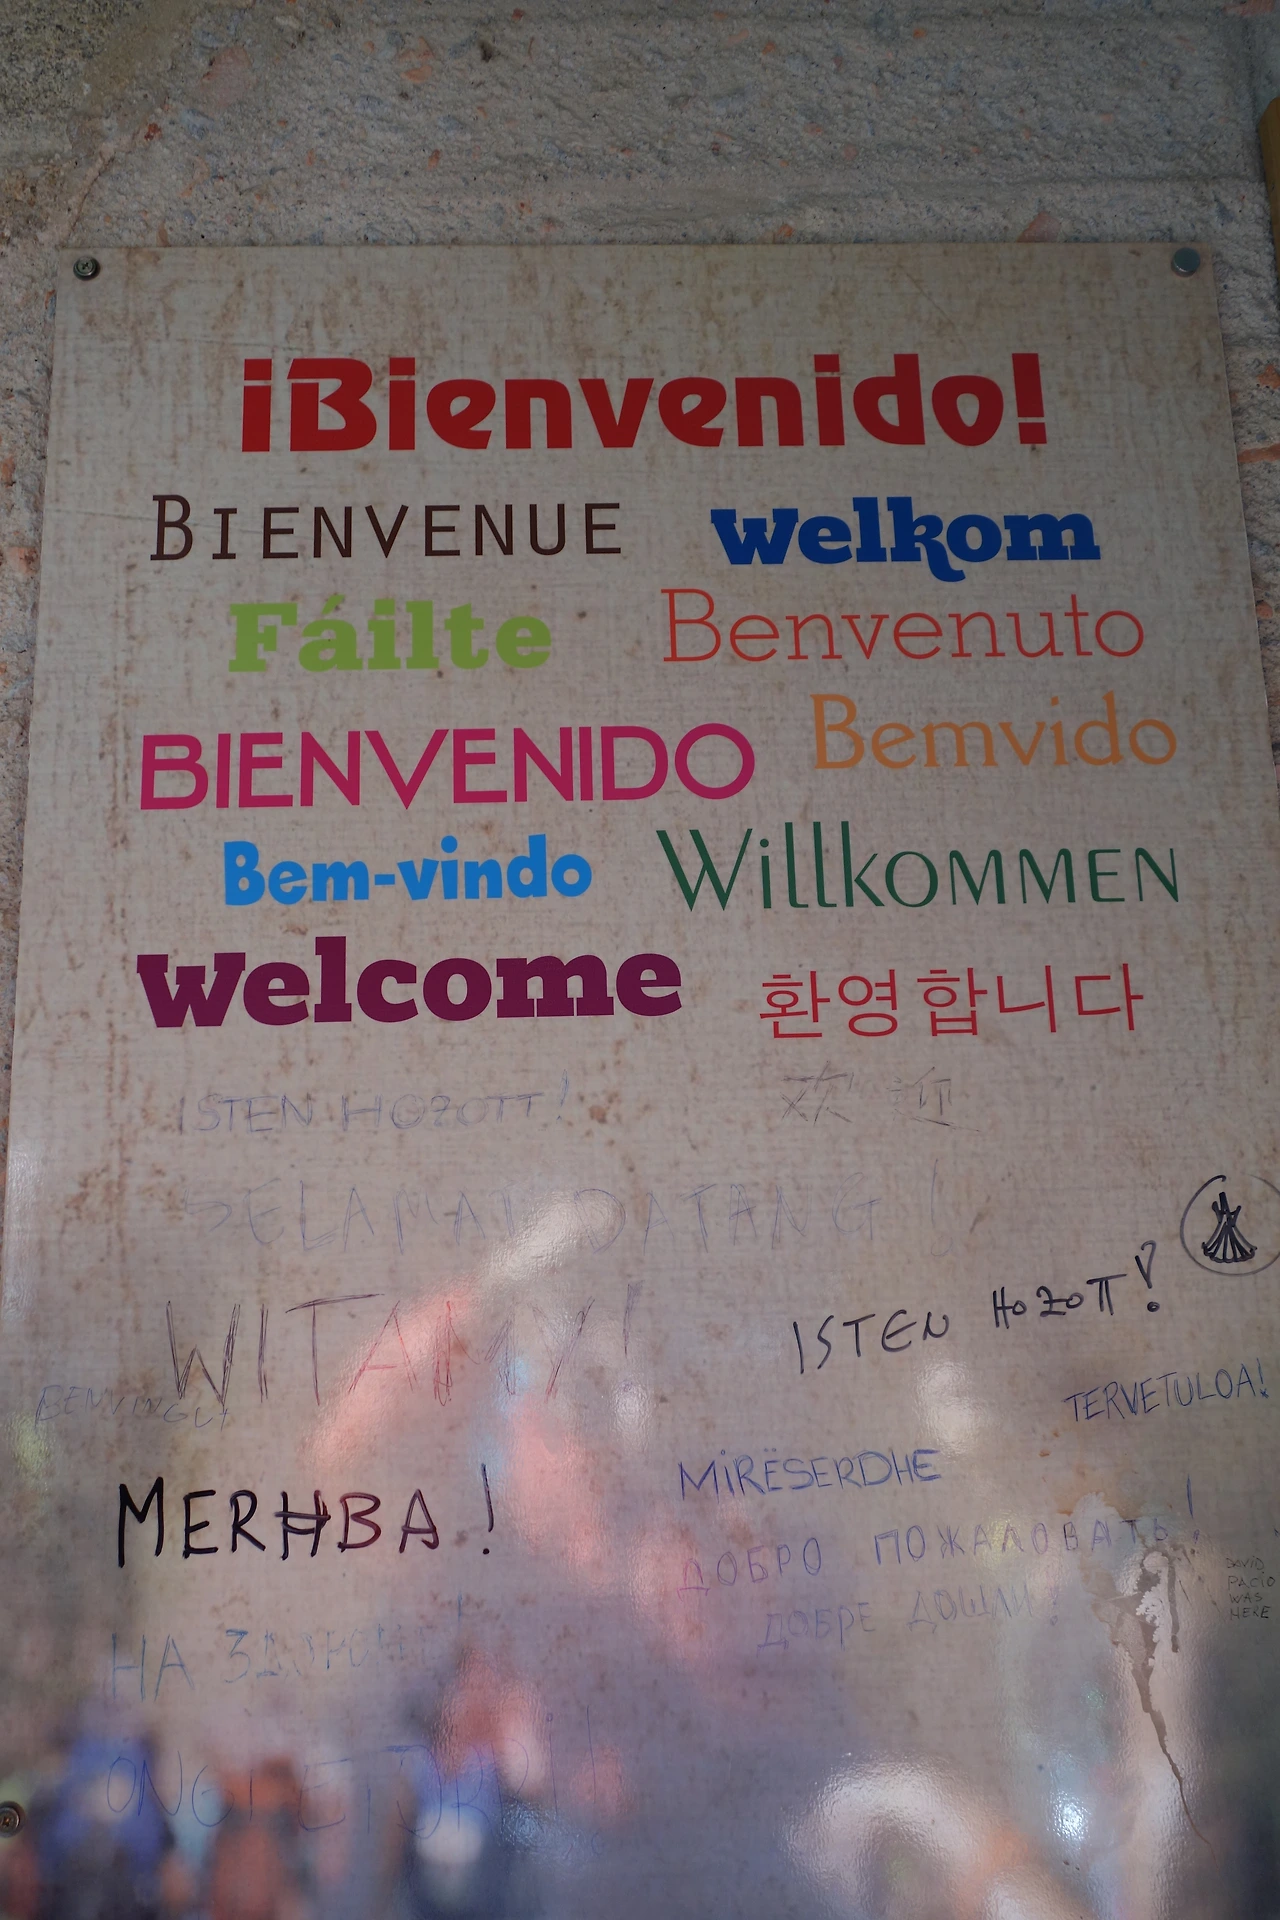 ¡Bienvenido!
BIENVENUE welkom
Fáilte Benvenuto
BIENVENIDO Bemvido
Bem-vindo WillkOMMEN
welcome 환영합니다
ISTEN HOZOTT! 欢迎
SELAMAT DATANG!
WITAMY!
ISTEN HOZOTT!
BENVINGUT
TERVETULOA!
MERHBA!
MIRËSERDHE
ДОБРО ПОЖАЛОВАТЬ!
ДОБРЕ ДОШЛИ!
DAVID
PACIO
WAS
HERE
НА
ONGI ETORRI!